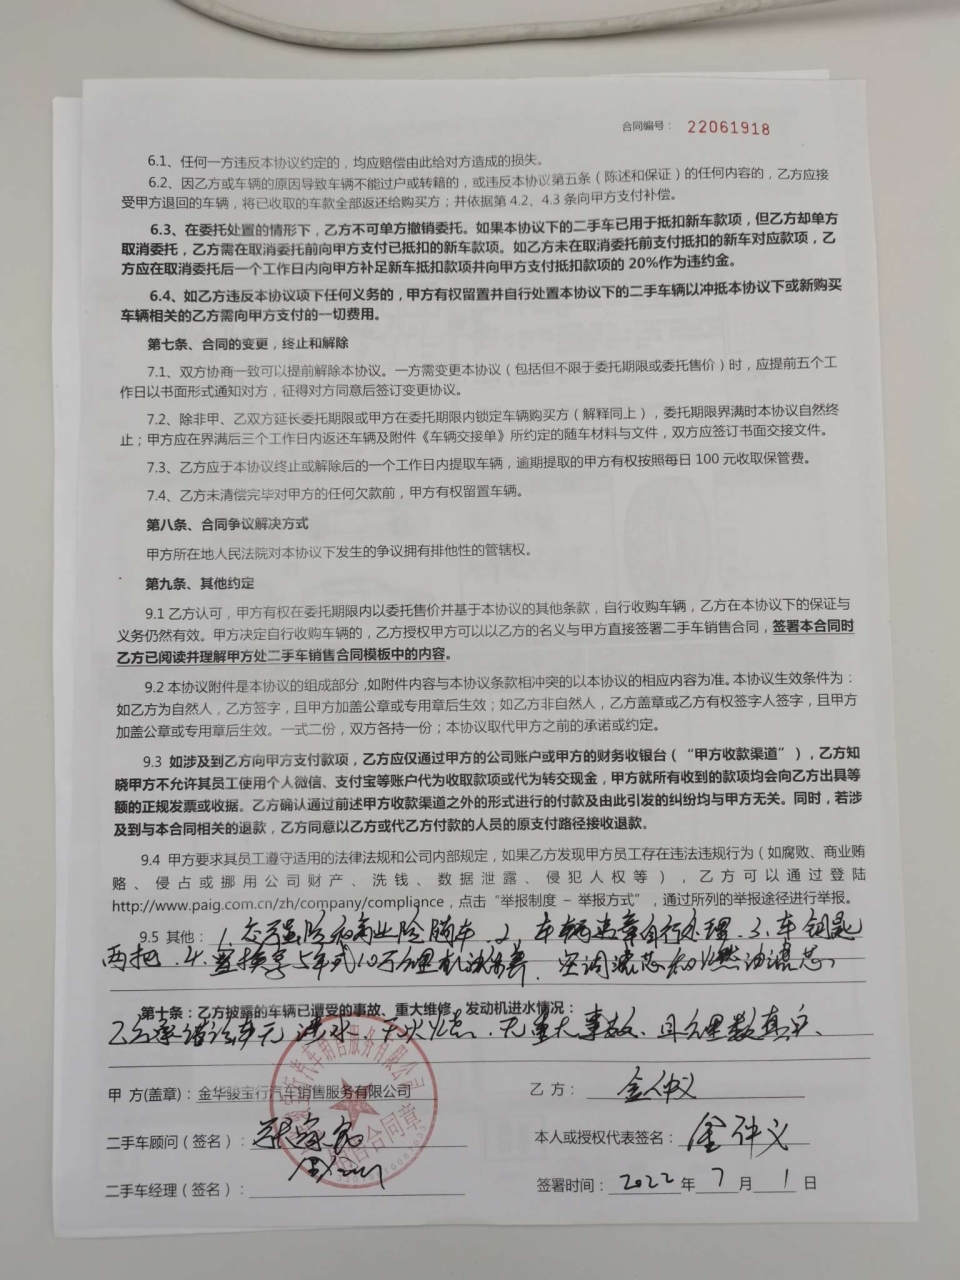 合同编号： 22061918
6.1、任何一方违反本协议约定的，均应赔偿由此给对方造成的损失。
6.2、因乙方或车辆的原因导致车辆不能过户或转籍的，或违反本协议第五条（陈述和保证）的任何内容的，乙方应接
受甲方退回的车辆，将已收取的车款全部返还给购买方；并依据第 4.2、4.3 条向甲方支付补偿。
6.3、在委托处置的情形下，乙方不可单方撤销委托。如果本协议下的二手车已用于抵扣新车款项，但乙方却单方
取消委托，乙方需在取消委托前向甲方支付已抵扣的新车款项。如乙方未在取消委托前支付抵扣的新车对应款项，乙
方应在取消委托后一个工作日内向甲方补足新车抵扣款项并向甲方支付抵扣款项的 20%作为违约金。
6.4、如乙方违反本协议项下任何义务的，甲方有权留置并自行处置本协议下的二手车辆以冲抵本协议下或新购买
车辆相关的乙方需向甲方支付的一切费用。
第七条、合同的变更，终止和解除
7.1、双方协商一致可以提前解除本协议。一方需变更本协议（包括但不限于委托期限或委托售价）时，应提前五个工
作日以书面形式通知对方，征得对方同意后签订变更协议。
7.2、除非甲、乙双方延长委托期限或甲方在委托期限内锁定车辆购买方（解释同上），委托期限界满时本协议自然终
止；甲方应在界满后三个工作日内返还车辆及附件《车辆交接单》所约定的随车材料与文件，双方应签订书面交接文件。
7.3、乙方应于本协议终止或解除后的一个工作日内提取车辆，逾期提取的甲方有权按照每日 100 元收取保管费。
7.4、乙方未清偿完毕对甲方的任何欠款前，甲方有权留置车辆。
第八条、合同争议解决方式
甲方所在地人民法院对本协议下发生的争议拥有排他性的管辖权。
第九条、其他约定
9.1 乙方认可，甲方有权在委托期限内以委托售价并基于本协议的其他条款，自行收购车辆，乙方在本协议下的保证与
义务仍然有效。甲方决定自行收购车辆的，乙方授权甲方可以以乙方的名义与甲方直接签署二手车销售合同，签署本合同时
乙方已阅读并理解甲方处二手车销售合同模板中的内容。
9.2 本协议附件是本协议的组成部分，如附件内容与本协议条款相冲突的以本协议的相应内容为准。本协议生效条件为：
如乙方为自然人，乙方签字，且甲方加盖公章或专用章后生效；如乙方非自然人，乙方盖章或乙方有权签字人签字，且甲方
加盖公章或专用章后生效。一式二份，双方各持一份；本协议取代甲方之前的承诺或约定。
9.3 如涉及到乙方向甲方支付款项，乙方应仅通过甲方的公司账户或甲方的财务收银台（“甲方收款渠道”），乙方知
晓甲方不允许其员工使用个人微信、支付宝等账户代为收取款项或代为转交现金，甲方就所有收到的款项均会向乙方出具等
额的正规发票或收据。乙方确认通过前述甲方收款渠道之外的形式进行的付款及由此引发的纠纷均与甲方无关。同时，若涉
及到与本合同相关的退款，乙方同意以乙方或代乙方付款的人员的原支付路径接收退款。
9.4 甲方要求其员工遵守适用的法律法规和公司内部规定，如果乙方发现甲方员工存在违法违规行为（如腐败、商业贿
赂、侵占或挪用公司财产、洗钱、数据泄露、侵犯人权等），乙方可以通过登陆
http://www.paig.com.cn/zh/company/compliance，点击“举报制度 – 举报方式”，通过所列的举报途径进行举报。
9.5 其他：1.交强险和商业险随车.2.车辆违章自行处理.3.车钥匙
两把.4.置换享5年或10万公里机油保养、空调滤芯和燃油滤芯、
第十条：乙方披露的车辆已遭受的事故、重大维修、发动机进水情况：
乙方承诺该车无泡水、无火烧、无重大事故、且公里数真实、
甲 方(盖章)：金华骏宝行汽车销售服务有限公司 乙 方：金仲义
二手车顾问（签名）： 本人或授权代表签名：金仲义
二手车经理（签名）： 签署时间：2022年7月1日